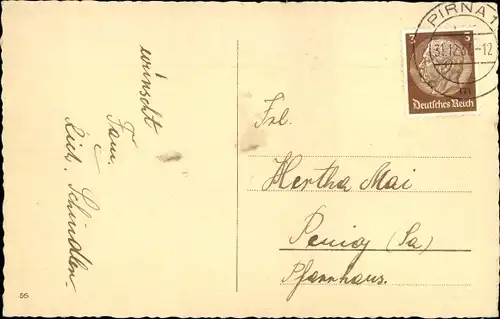 wünscht
Fam.
Rich. Schindler.
PIRNA 1
31.12.
-12
3 3
Deutsches Reich
Frl.
Hertha Mai
Penig (Sa)
Pfarrhaus.
56